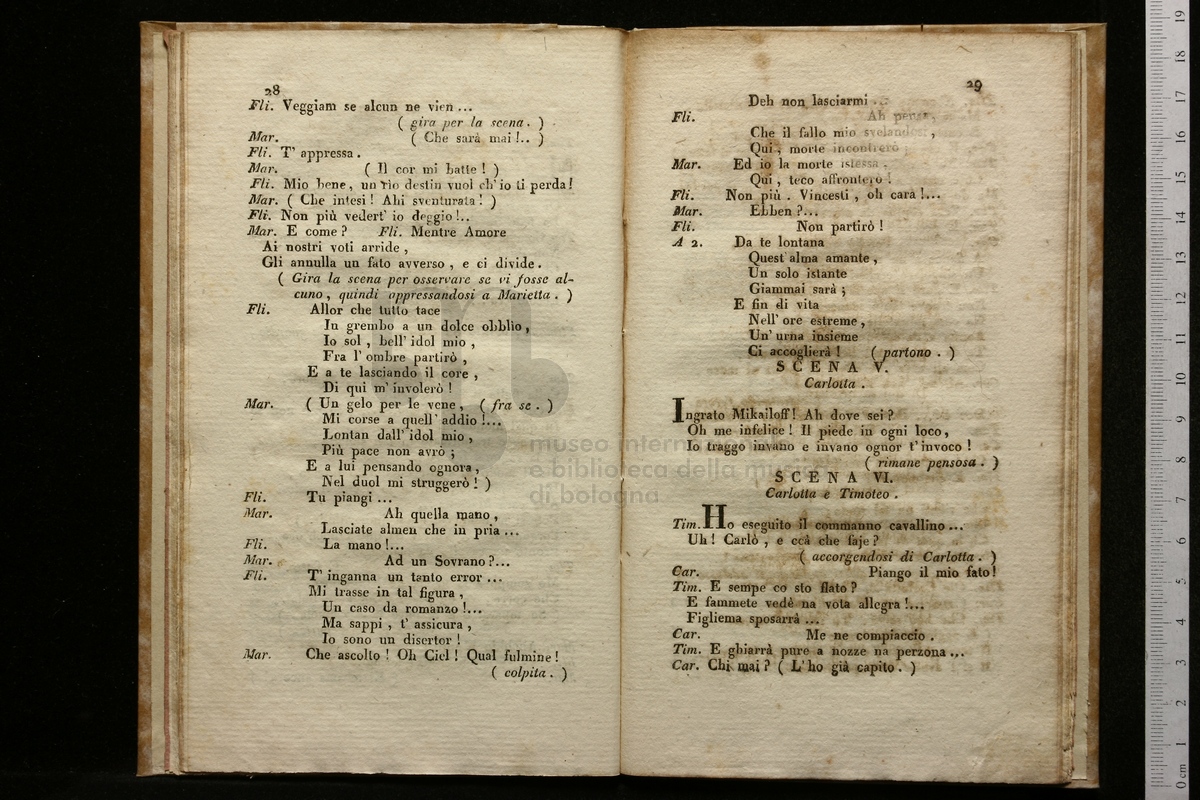 28
Fli. Veggiam se alcun ne vien ...
( gira per la scena . )
Mar. ( Che sarà mai !.. )
Fli. T' appressa .
Mar. ( Il cor mi batte ! )
Fli. Mio bene, un rio destin vuol ch' io ti perda !
Mar. ( Che intesi ! Ahi sventurata ! )
Fli. Non più vedert' io deggio !..
Mar. E come ? Fli. Mentre Amore
Ai nostri voti arride ,
Gli annulla un fato avverso , e ci divide .
( Gira la scena per osservare se vi fosse al-
cuno , quindi appressandosi a Marietta . )
Fli. Allor che tutto tace
In grembo a un dolce obblìo ,
Io sol , bell' idol mio ,
Fra l' ombre partirò ,
E a te lasciando il core ,
Di qui m' involerò !
Mar. ( Un gelo per le vene , ( fra se . )
Mi corse a quell' addio !...
Lontan dall' idol mio ,
Più pace non avrò ;
E a lui pensando ognora ,
Nel duol mi struggerò ! )
Fli. Tu piangi ...
Mar. Ah quella mano ,
Lasciate almen che in pria ...
Fli. La mano !...
Mar. Ad un Sovrano ?...
Fli. T' inganna un tanto error ...
Mi trasse in tal figura ,
Un caso da romanzo !...
Ma sappi , t' assicura ,
Io sono un disertor !
Mar. Che ascolto ! Oh Ciel ! Qual fulmine !
( colpita . )
29
Deh non lasciarmi ...
Fli. Ah pensa ,
Che il fallo mio svelandosi ,
Qui , morte incontrerò
Mar. Ed io la morte istessa .
Qui , teco affronterò !
Fli. Non più . Vincesti , oh cara !...
Mar. Ebben ?...
Fli. Non partirò !
A 2. Da te lontana
Quest' alma amante ,
Un solo istante
Giammai sarà ;
E fin di vita
Nell' ore estreme ,
Un' urna insieme
Ci accoglierà ! ( partono . )
SCENA V.
Carlotta .
Ingrato Mikailoff ! Ah dove sei ?
Oh me infelice ! Il piede in ogni loco,
Io traggo invano e invano ognor t' invoco !
( rimane pensosa . )
SCENA VI.
Carlotta e Timoteo .
Tim. Ho eseguito il commanno cavallino ...
Uh ! Carlò , e ccà che faje ?
( accorgendosi di Carlotta . )
Car. Piango il mio fato !
Tim. E sempe co sto flato ?
E fammete vedè na vota allegra !...
Figliema sposarrà ...
Car. Me ne compiaccio .
Tim. E ghiarrà pure a nozze na perzona ...
Car. Chi mai ? ( L' ho già capito . )
museo internazionale
e biblioteca della musica
di bologna
0 cm 1 2 3 4 5 6 7 8 9 10 11 12 13 14 15 16 17 18 19